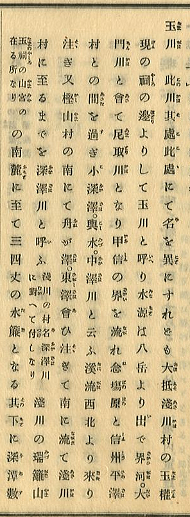 玉川　此川其處此處にて名を異にすれども大抵淺川村の玉權
現の祠の邊よりして玉川と呼り水源は八岳より出で界河。大
門川と會て尼取川となり甲信の界を流れ念塲原と信州平澤
村との間を過ぎ小深澤。輿水。中澤川と云ふ溪流西北より來り
注ぎ又樫山村の南にて舟が澤。東澤會ひ注ぎて南に流て淺川
村に至るまでを深澤川と呼ふ淺川の村名深澤川に對して付しなり　淺川の瑞籬山
玉祠の山宮の在る所なりの南麓に至て三四丈の水簾となる其下に深潭數